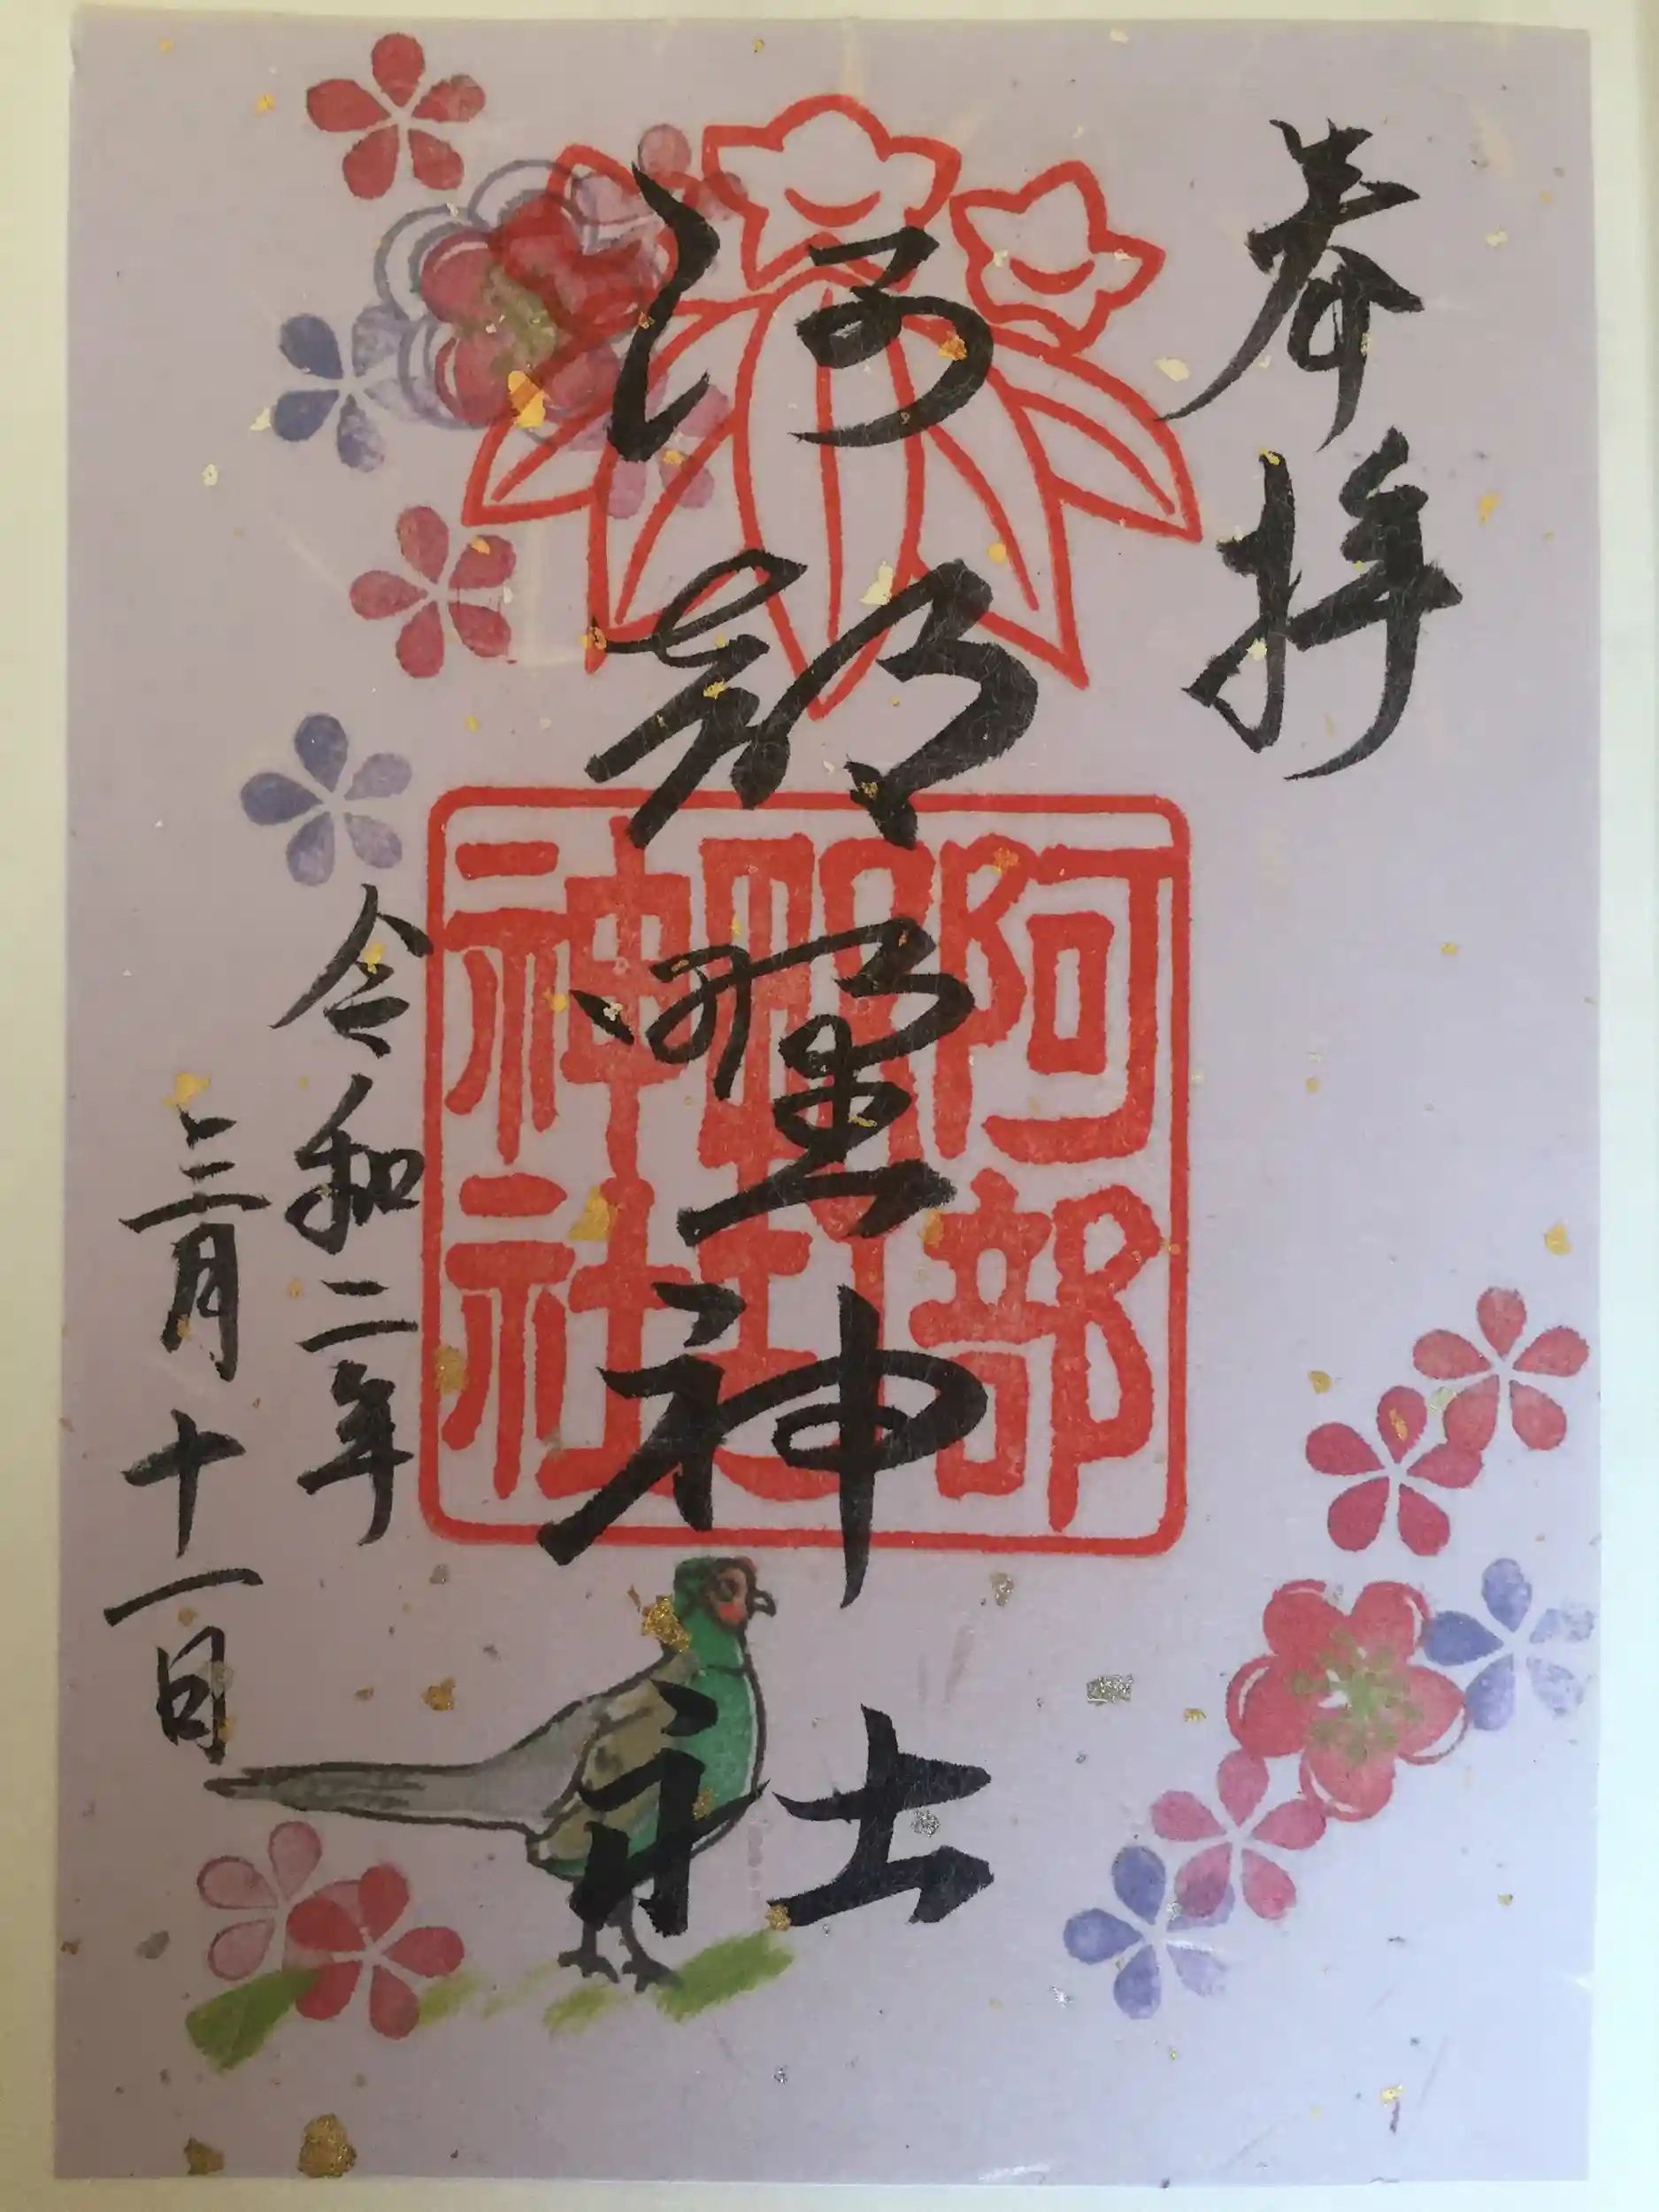 奉拝
阿部野神社
令和二年
三月十一日
阿部野神社